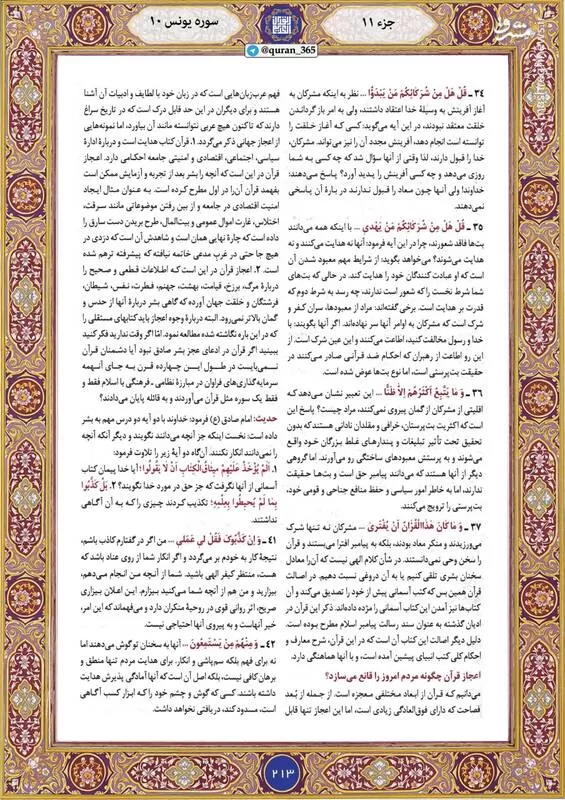 جزء ۱۱
سوره یونس ۱۰
@quran_365
مشرق
۳۴ ـ قُلْ هَلْ مِنْ شُرَکَائِکُمْ مَنْ یَبْدَؤُا ... نظر به اینکه مشرکان به
آغاز آفرینش به وسیلهٔ خدا اعتقاد داشتند، ولی به امر بازگرداندن
خلقت معتقد نبودند، در این آیه می‌گوید: کسی که آغاز خلقت را
توانسته است انجام دهد، آفرینش مجدد آن را نیز می‌تواند. مشرکان،
خدا را قبول دارند، لذا وقتی از آنها سؤال شد که چه کسی به شما
روزی می‌دهد و چه کسی آفرینش را پدید آورد؟ پاسخ می‌دهند:
خداوند! ولی آنها چون معاد را قبول ندارند در بارهٔ آن پاسخی
نمی‌دهند.
۳۵ ـ قُلْ هَلْ مِنْ شُرَکَائِکُمْ مَنْ یَهْدِي ... با اینکه همه می‌دانند
بت‌ها فاقد شعورند، چرا در این آیه فرمود: آنها نه هدایت می‌کنند و نه
هدایت می‌شوند؟ می‌خواهد بگوید: از شرایط مهم معبود شدن آن
است که او عبادت کنندگان خود را هدایت کند. در حالی که بت‌های
شما شرط نخست را که شعور است ندارند، چه رسد به شرط دوم که
قدرت بر هدایت است. برخی گفته‌اند: مراد از معبودها، سران کفر و
شرک است که مشرکان به اوامر آنها سر نهاده‌اند. اگر آنها بگویند: با
خدا و رسول مخالفت کنید، اطاعت می‌کنند و این عین شرک است. از
این رو اطاعت از رهبران که احکام ضد قرآنی صادر می‌کنند در
حقیقت بت‌پرستی است، اما نوع بت‌ها عوض شده است.
۳۶ ـ وَ مَا یَتَّبِعُ أَکْثَرُهُمْ إِلَّا ظَنًّا ... این تعبیر نشان می‌دهد که
اقلیتی از مشرکان از گمان پیروی نمی‌کنند، مراد چیست؟ پاسخ این
است که اکثریت بت‌پرستان، خرافی و مقلدان نادانی هستند که بدون
تحقیق تحت تأثیر تبلیغات و پندارهای غلط بزرگان خود واقع
می‌شوند و به پرستش معبودهای ساختگی رو می‌آورند. اما گروهی
دیگر از آنها هستند که می‌دانند پیامبر حق است و بت‌ها حقیقت
ندارند، اما به خاطر امور سیاسی و حفظ منافع جناحی و قومی خود،
بت‌پرستی را ترویج می‌کنند.
۳۷ ـ وَ مَا کَانَ هٰذَا الْقُرْآنُ أَنْ یُفْتَرَىٰ ... مشرکان نه تنها شرک
می‌ورزیدند و منکر معاد بودند، بلکه به پیامبر افترا می‌بستند و قرآن
را سخن وحی نمی‌دانستند. در شأن کلام الهی نیست که آن‌را معادل
سخنان بشری تلقی کنیم یا به آن دروغی نسبت دهیم. در اصالت
قرآن همین بس که کتب آسمانی پیش از خود را تصدیق می‌کند و آن
کتاب‌ها نیز آمدن این کتاب آسمانی را مژده داده‌اند. ذکر این قرآن در
ادیان گذشته به عنوان سند رسالت پیامبر اسلام مطرح بوده است.
دلیل دیگر اصالت این کتاب آن است که در این قرآن، شرح معارف و
احکام کلی کتب انبیای پیشین آمده است، و با آنها هماهنگی دارد.
اعجاز قرآن چگونه مردم امروز را قانع می‌سازد؟
می‌دانیم که قرآن از ابعاد مختلفی معجزه است. از جمله از بُعد
فصاحت که دارای فوق‌العادگی زیادی است، اما این اعجاز تنها قابل
فهم عرب‌زبان‌هایی است که در زبان خود با لطایف و ادبیات آن آشنا
هستند و برای دیگران در این حد قابل درک است که در تاریخ سراغ
دارند که تاکنون هیچ عربی نتوانسته مانند آن بیاورد، اما نمونه‌هایی
از اعجاز جهانی ذکر می‌گردد. ۱. قرآن کتاب هدایت است و دربارهٔ ادارهٔ
سیاسی، اجتماعی، اقتصادی و امنیتی جامعه احکامی دارد. اعجاز
قرآن در این است که آنچه را بشر بعد از تجربه و آزمایش ممکن است
بفهمد قرآن آن‌را در اول مطرح کرده است. به عنوان مثال ایجاد
امنیت اقتصادی در جامعه و از بین رفتن موضوعاتی مانند سرقت،
اختلاس، غارت اموال عمومی و بیت‌المال، طرح بریدن دست سارق را
داده است که چارهٔ نهایی همان است و شاهدش آن است که دزدی در
هیچ جا حتی در غربِ مدعی خاتمه نیافته که پیشرفته ترهم شده
است. ۲. اعجاز قرآن در این است کـه اطلاعات قطعی و صحیح را
دربارهٔ مرگ، برزخ، قیامت، بهشت، جهنم، فطرت، نفس، شیطان،
فرشتگان و خلقت جهان آورده که گاهی بشر دربارهٔ آنها از حدس و
گمان بالاتر نمی‌رود. البته دربارهٔ وجوه اعجاز باید کتابهای مستقلی را
که در این باره نگاشته شده مطالعه نمود. امّا اگر وقت ندارید فکر کنید
ببینید اگر قرآن در ادعای عجز بشر صادق نبود آیا دشمنان قرآن
نمی‌بایست در طول این چهارده قرن به جای آنهمه
سرمایه‌گذاری‌های فراوان در مبارزهٔ نظامی ـ فرهنگی با اسلام فقط و
فقط یک سوره مثل قرآن می‌آوردند و به قائله پایان می‌دادند؟
حدیث: امام صادق (ع) فرمود: خداوند با دو آیه دو درس مهم به بشر
داده است: نخست اینکه جز آنچه می‌دانند نگویند و دیگر آنکه آنچه
را نمی‌دانند انکار نکنند. آن‌گاه دو آیهٔ زیر را تلاوت فرمود:
۱. أَلَمْ یُؤْخَذْ عَلَیْهِمْ مِیثَاقُ الْکِتَابِ أَنْ لَا یَقُولُوا؛ آیا خدا پیمان کتاب
آسمانی از آنها نگرفت که جز حق در مورد خدا نگویند؟ ۲. بَلْ کَذَّبُوا
بِمَا لَمْ یُحِیطُوا بِعِلْمِهِ؛ تکذیب کردند چیزی را که به آن آگاهی
نداشتند.
۴۱ ـ وَ إِنْ کَذَّبُوكَ فَقُلْ لِي عَمَلِي ... من اگر در گفتارم کاذب باشم،
نتیجهٔ کار به خودم بر می‌گردد و اگر انکار شما از روی عناد باشد که
هست، منتظر کیفر الهی باشید. شما از آنچه من انجام می‌دهم،
بیزارید و من هم از آنچه شما می‌کنید بیزارم. این اعلان بیزاری
صریح، اثر روانی قوی در روحیهٔ منکران دارد و می‌فهماند که این امر،
خیر آنهاست و به پیروی آنها احتیاجی نیست.
۴۲ ـ وَ مِنْهُمْ مَنْ یَسْتَمِعُونَ ... آنها به سخنان تو گوش می‌دهند اما
نه برای فهم بلکه سم‌پاشی و انکار. برای هدایت مردم تنها منطق و
برهان کافی نیست، بلکه اصل آن است که آنها آمادگی پذیرش هدایت
داشته باشند. کسی که گوش و چشم خود را کـه ابزار کسب آگاهی
است، مسدود کند، دریافتی نخواهد داشت.
۲۱۳